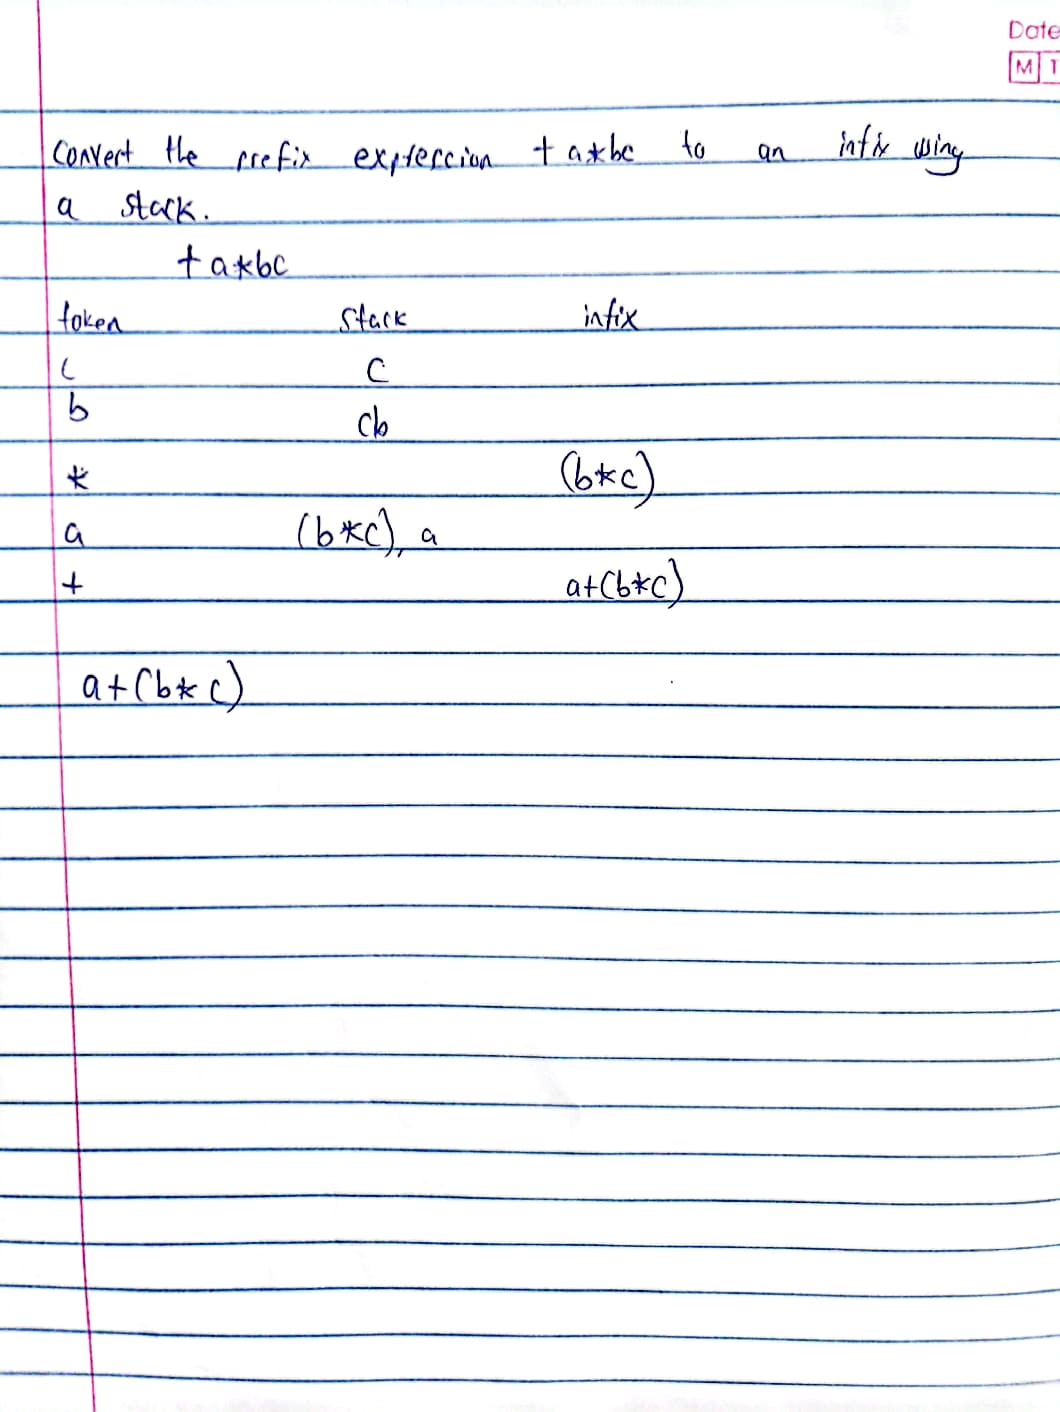 Date
M T
Convert the prefix expression + a*bc to an infix using
a stack.
+a*bc
token stack infix
c c
b cb
* (b*c)
a (b*c), a
+ a+(b*c)
a+(b*c)